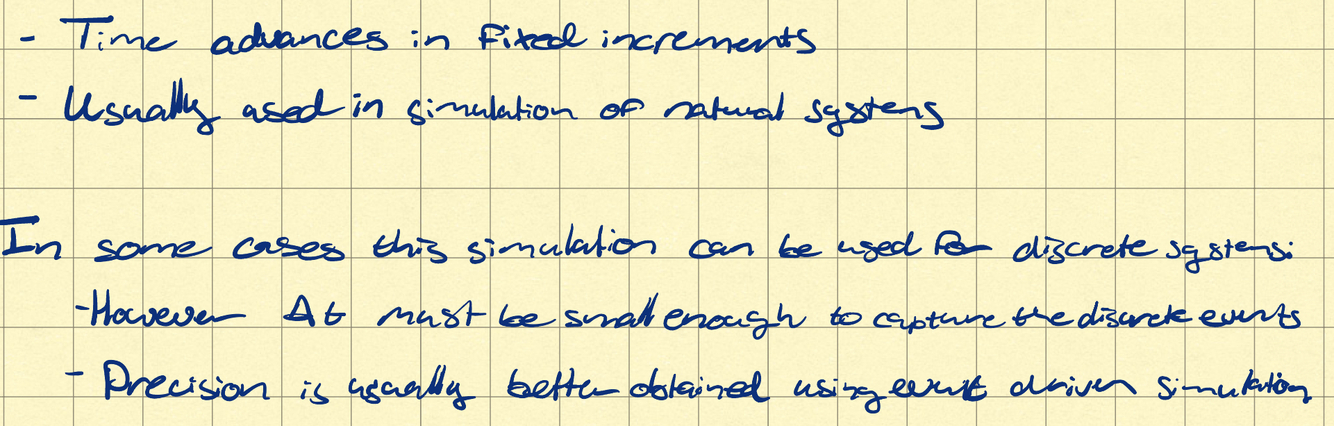 - Time advances in fixed increments
- Usually used in simulation of natural systems
In some cases this simulation can be used for discrete systems:
- However Δt must be small enough to capture the discrete events
- Precision is usually better obtained using event driven simulation